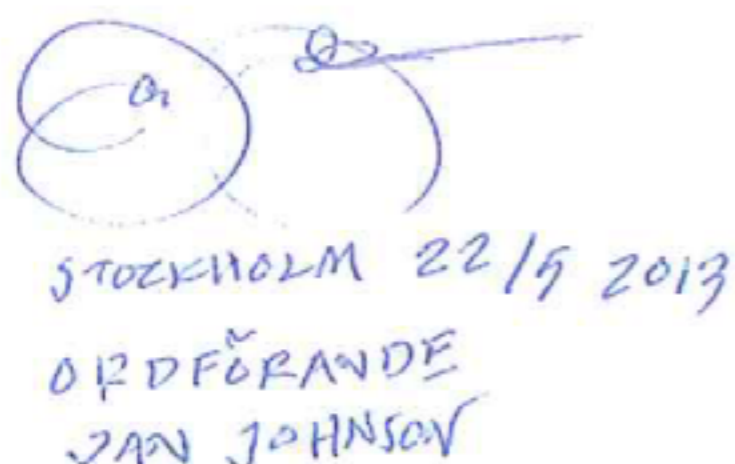 STOCKHOLM 22/5 2013
ORDFÖRANDE
JAN JOHNSON